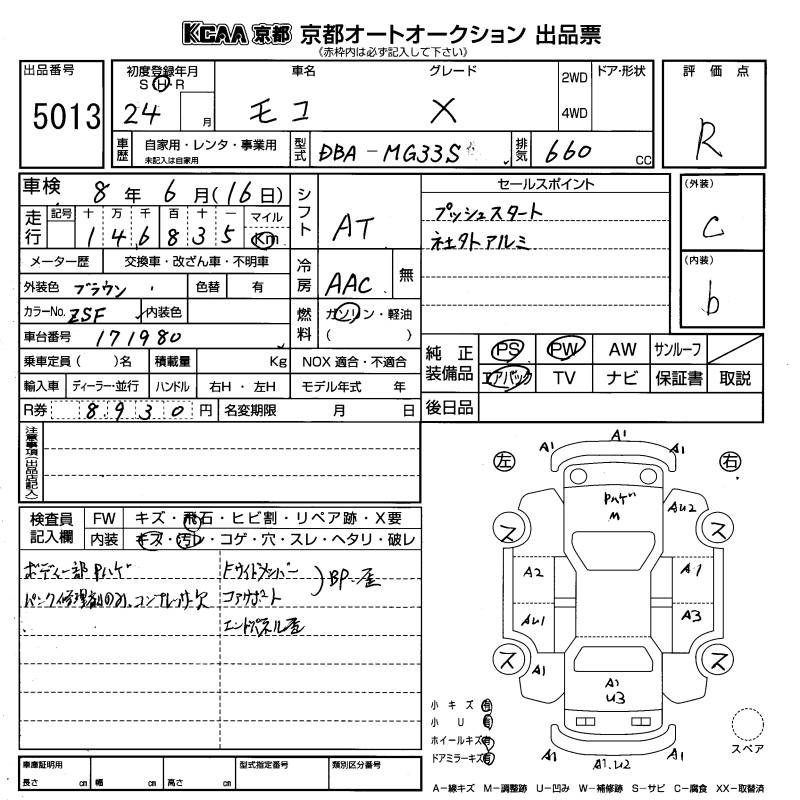 KCAA 京都 京都オートオークション 出品票
(赤枠内は必ず記入して下さい)
出品番号 初度登録年月 車名 グレード 2WD ドア・形状 評価点
S H・R
5013 24 月 モコ X 4WD R
車歴 自家用・レンタ・事業用 型式 DBA-MG33S 排気 660 CC
未記入は自家用
車検 8 年 6 月(16日) シフト AT セールスポイント (外装)
走行 記号 十 万 千 百 十 一 マイル プッシュスタート C
1 4 6 8 3 5 Km 社外アルミ
メーター歴 交換車・改ざん車・不明車 冷房 AAC 無 (内装)
外装色 ブラウン 色替 有 b
カラーNo. ZSF 内装色 燃料 ガソリン・軽油
車台番号 171980 ( )
乗車定員( )名 積載量 Kg NOX 適合・不適合 純正装備品 PS PW AW サンルーフ
輸入車 ディーラー・並行 ハンドル 右H・左H モデル年式 年 エアバック TV ナビ 保証書 取説
R券 8930 円 名変期限 月 日 後日品
注意事項(出品店記入)
検査員記入欄 FW キズ・飛石・ヒビ割・リペア跡・X要
内装 キズ・汚レ・コゲ・穴・スレ・ヘタリ・破レ
ボディー一部Pハゲ
パンク修理剤のみ、コンプレッサー欠
コアサポート
BP.歪
エンドパネル歪
左 右
A1 A1 A1
Pハゲ M
AU2
ス ス
A2 A1
AU1 A3
ス ス
A1 A1 U3 A1
A1 A1.U2 A1
小キズ 有
小U 有
ホイールキズ 有
ドアミラーキズ 有
スペア
車庫証明用 型式指定番号 類別区分番号
長さ cm 幅 cm 高さ cm
A-線キズ M-調整跡 U-凹み W-補修跡 S-サビ C-腐食 XX-取替済